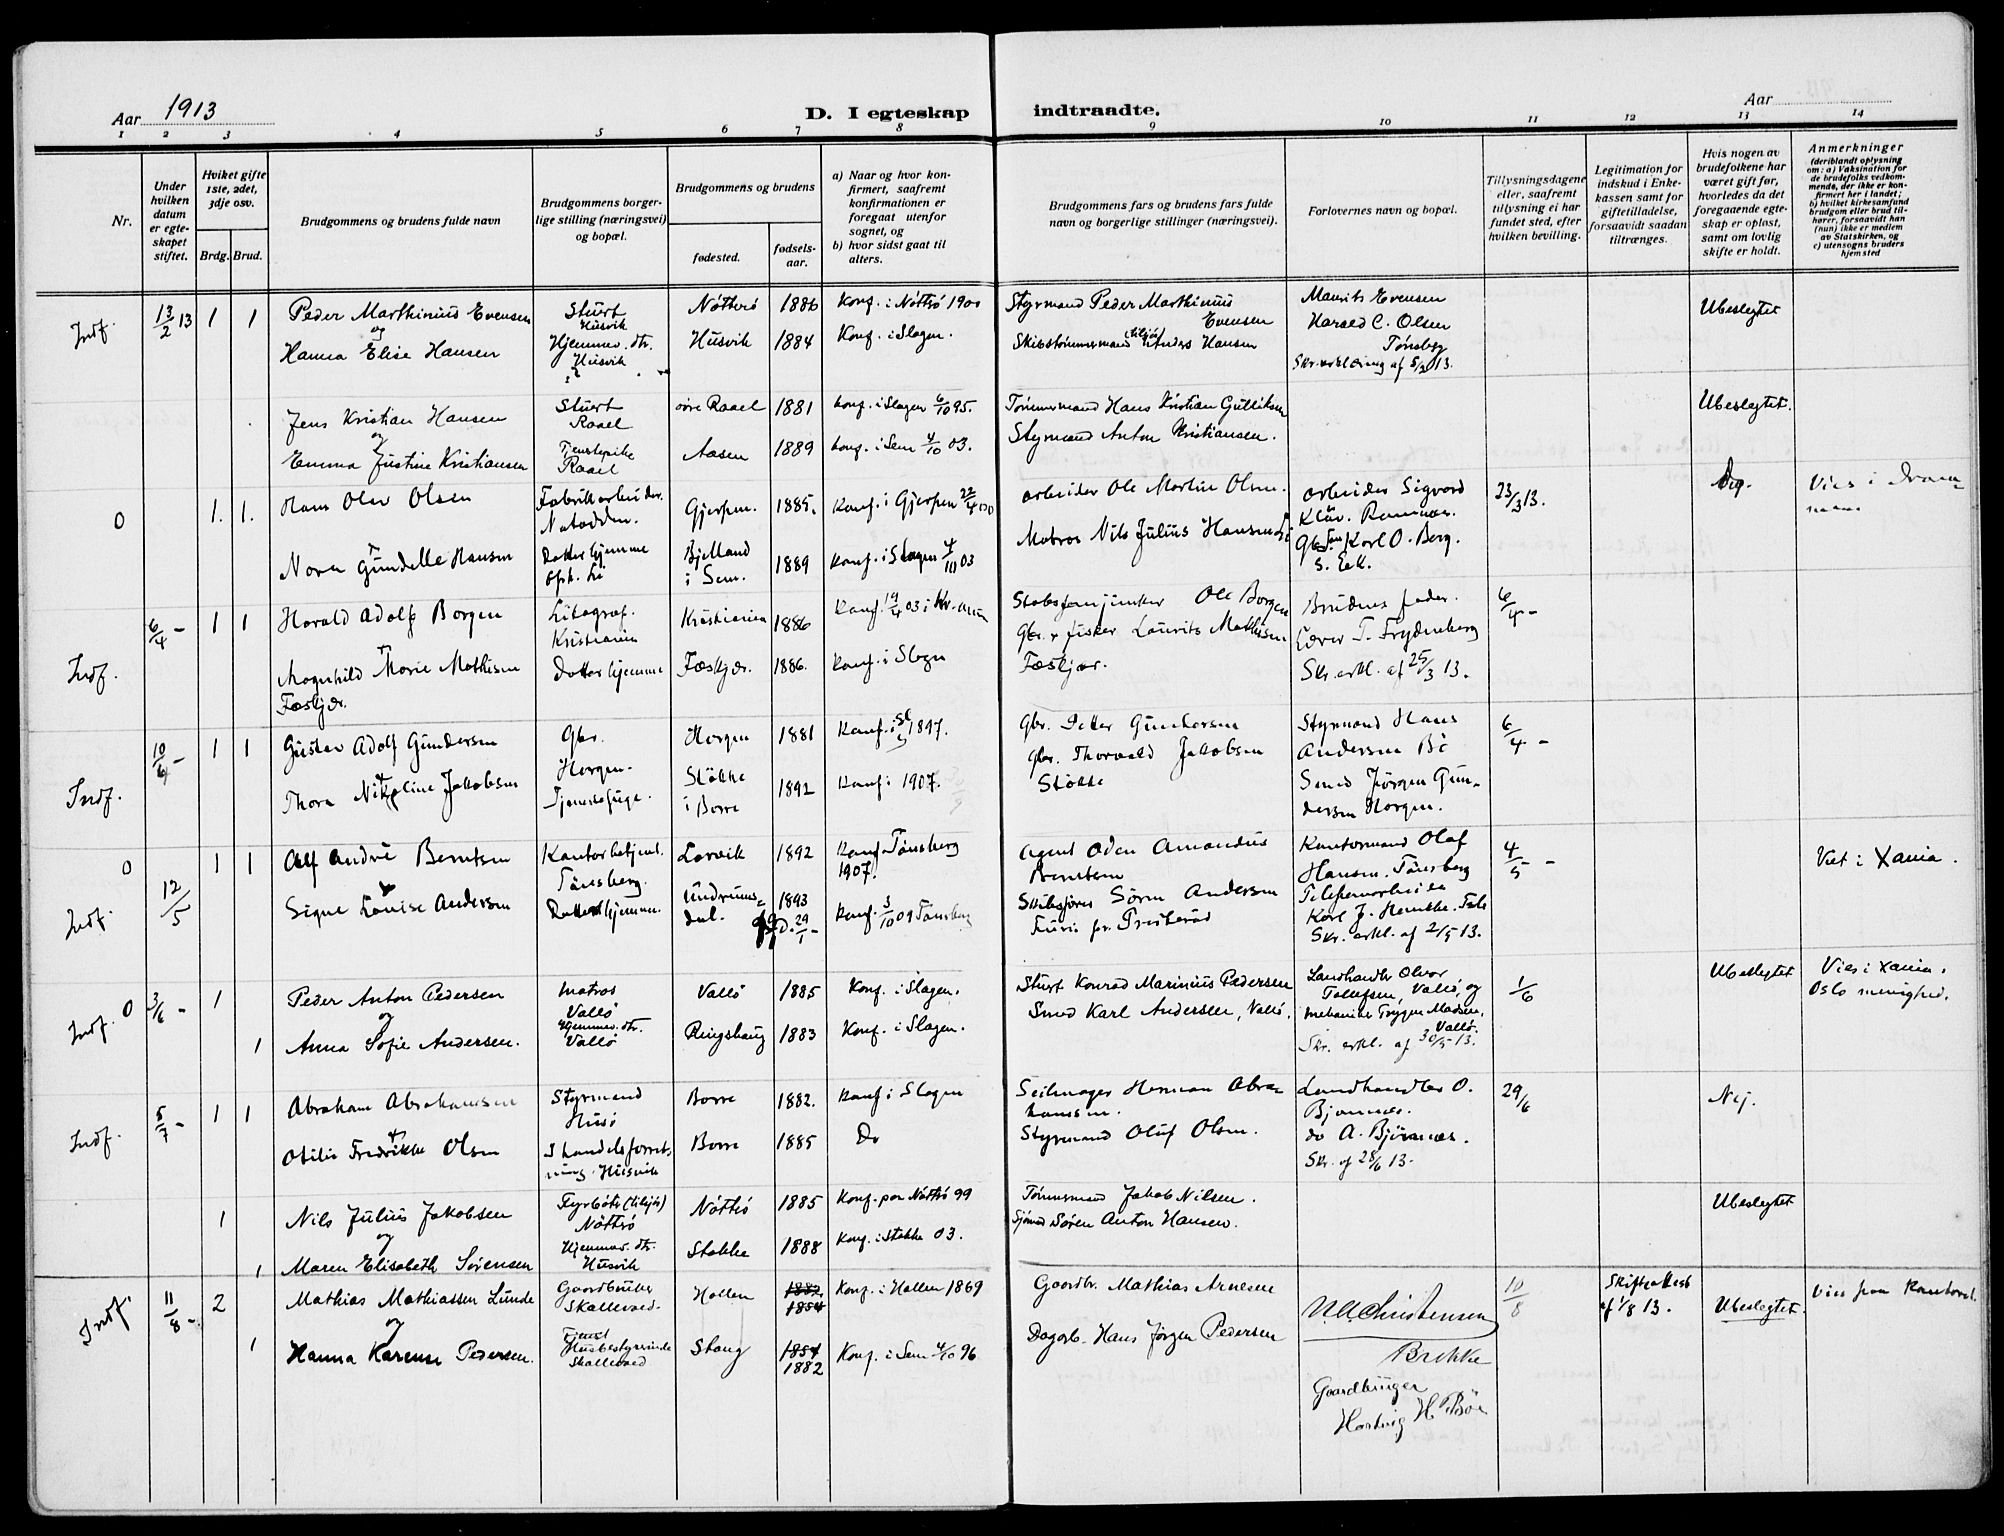 Aar 1913
D. I egteskap indtraadte.
Aar
1 2 3 4 5 6 7 8 9 10 11 12 13 14
Nr.
Under hvilken datum er egteskapet stiftet.
Hvilket gifte 1ste, 2det, 3dje osv.
Brdg. Brud.
Brudgommens og brudens fulde navn
Brudgommens borgerlige stilling (næringsvei) og bopæl.
Brudgommens og brudens
fødested.
fødselsaar.
a) Naar og hvor konfirmert, saafremt konfirmationen er foregaat utenfor sognet, og
b) hvor sidst gaat til alters.
Brudgommens fars og brudens fars fulde navn og borgerlige stillinger (næringsvei).
Forlovernes navn og bopæl.
Tillysningsdagene eller, saafremt tillysning ei har fundet sted, efter hvilken bevilling.
Legitimation for indskud i Enkekassen samt for giftetilladelse, forsaavidt saadan tiltrænges.
Hvis nogen av brudefolkene har været gift før, hvorledes da det foregaaende egteskap er opløst, samt om lovlig skifte er holdt.
Anmerkninger
(deriblandt oplysning om: a) Vaksination for de brudefolks vedkommende, der ikke er konfirmert her i landet; b) hvilket kirkesamfund brudgom eller brud tilhører, forsaavidt han (hun) ikke er medlem av Statskirken, og c) utensogns bruders hjemsted
Indf. 13/2 13 1 1
Peder Marthinius Evensen
og
Hanna Elise Hansen
Sturt Husvik
Hjemmev. dtr. Husvik
Nötterö 1886 Konf. i Nöttrö 1900
Husvik 1884 Konf. i Slagen.
Styrmand Peder Marthinius Evensen
Skibstömmermand Anders Hansen
Maurits Evensen
Harald C. Olsen
Tönsberg
Skr. erklæring af 5/2 13.
Ubeslegtet
Jens Kristian Hansen
og
Emma Justine Kristiansen
Sturt Raael
Tjenstepike Raael
övre Raael 1881 konf. i Slagen 6/10 95.
Aasen 1889 konf. i Sem 4/10 03.
Tömmermand Hans Kristian Gulliksen
Styrmand Anton Kristiansen.
Ubeslegtet.
0 1. 1.
Hans Olav Olsen
Nora Gundelle Hansen
Fabrikarbeider. Notodden.
Datter hjemme
Gjerpen. 1885. Konf. i Gjerpen
Bjelland i Sem. 1889 Konf. i Slagen
arbeider Ole Martin Olsen.
Matros Nils Julius Hansen
arbeider Sigvard
Karl O. Berg.
S. Eek.
23/3 13.
Vies i Drammen
Indf. 6/4 - 1 1
Harald Adolf Borgen
Magnhild Marie Mathisen
Fæskjær.
Litograf. Kristiania
Datter hjemme
Kristiania 1886 Konf. 19/4 03 i Kr.ania
Fæskjær. 1886. Konf. i Slagn
Ole Borgen
Gbr. & fisker Laurits Mathisen
Fæskjær.
Brudens fader.
Lærer T. Frydenberg
Skr. erkl. af 25/3 13.
6/4 -
Indf. 10/4 - 1 1
Gustav Adolf Gundersen
Thora Nikoline Jakobsen
Gbr. Horgen.
Tjenestepige.
Horgen 1881 Konf. i Sl 1897.
Stökke i Borre 1892 Konf. i 1907.
Gbr. Petter Gundersen
Gbr. Thorvald Jakobsen
Stökke
Styrmand Hans
Andersen Bö
Smed Jörgen Gundersen Horgen.
6/4 -
0
Indf. 12/5 1 1
Alf André Berntsen
Signe Louise Andersen
Kontorbetjent. Tönsberg.
Datter hjemme.
Larvik 1892 Konf. Tönsberg 1907.
Undrumsdal. 1893 D. 29/1 - Konf. 3/10 09 Tönsberg
Agent Oden Amandus
Berntsen
Skibsförer Sörn Andersen
Kontormand Olaf
Hansen. Tönsberg
Telefonarbeider
Skr. erkl. af 2/5 13.
4/5 -
Viet i Xania.
Indf. 0 3/6 - 1
Peder Anton Pedersen
og
1 Anna Sofie Andersen.
Matros Vallö
Hjemmev. dtr. Vallö
Vallö 1885 Konf. i Slagen.
Ringshaug 1883 Konf. i Slagen.
Sturt Konrad Marinius Pedersen
Smed Karl Andersen, Vallö.
Landhandler Olvar
Tollefsen, Vallö, og
mekaniker Trygve Madsen, Vallö.
Skr. erkl. af 30/5 13.
1/6
Ubeslegtet
Vies i Xania.
Oslo menighed.
Indf. 5/7 - 1 1
Abraham Abrahamsen
Otilie Fredrikke Olsen
Styrmand Husö
I handelsforretning. Husvik
Borre 1882. Konf. i Slagen
Borre 1885 Do
Seilmager Herman Abrahamsen.
Styrmand Oluf Olsen.
Landhandler O.
Bjönnes.
do A. Björnnes.
Skr. af 28/6 13.
29/6
Nej.
1 Nils Julius Jakobsen
og
1 Maren Elisabeth Sörensen
Fyrböter (tilsjös) Nöttrö
Hjemmev. dtr. Husvik
Nöttrö 1885 Konf. paa Nöttrö 99
Stokke 1888 Konf. i Stokke 03.
Tömmermand Jakob Nilsen.
Sjömd Sören Anton Hansen.
Ubeslegtet
Indf. 11/8 - 2
Mathias Mathiassen Lunde
og
1 Hanna Karense Pedersen.
Gaardbruker Skallevold.
Tjenst Husbestyrerinde Skallevold
Hollen 1882 1854 Konf. i Hollen 1869
Stang 1854 1882 Konf. i Sem 4/10 96
Gaardbr. Mathias Arnesen
Dagarb. Hans Jörgen Pedersen
Christensen
Brekke
Gaardbruger
Hartvig H. Böe
10/8
Skifteattest
af 1/8 13.
Ubeslegtet.
Vies paa Kontoret.